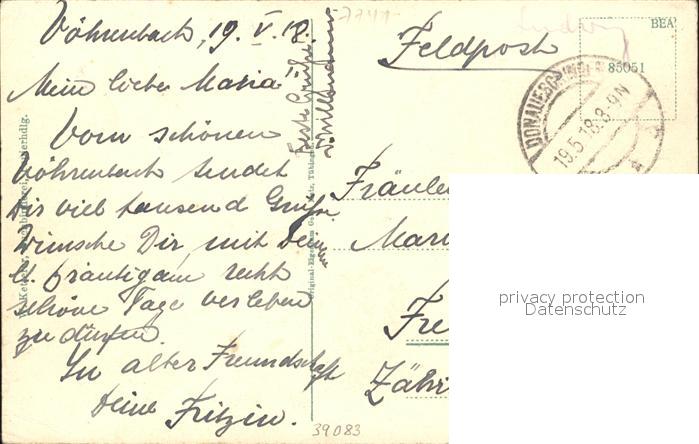 Vöhrenbach, 19. V. 18.
Mein lieber Maria!
Vom schönen
Vöhrenbach sendet
Dir viel tausend Grüße
Wünsche Dir, mit Deinem
lb. Bräutigam recht
schöne Tage verleben
zu dürfen.
In alter Freundschaft
Deine Fritzin.
Beste Grüße
39083
Feldpost
BEA
85051
DONAUESCHINGEN
19.5.18.8-9N
Fräule
Mari
Fre
Zähr
privacy protection
Datenschutz